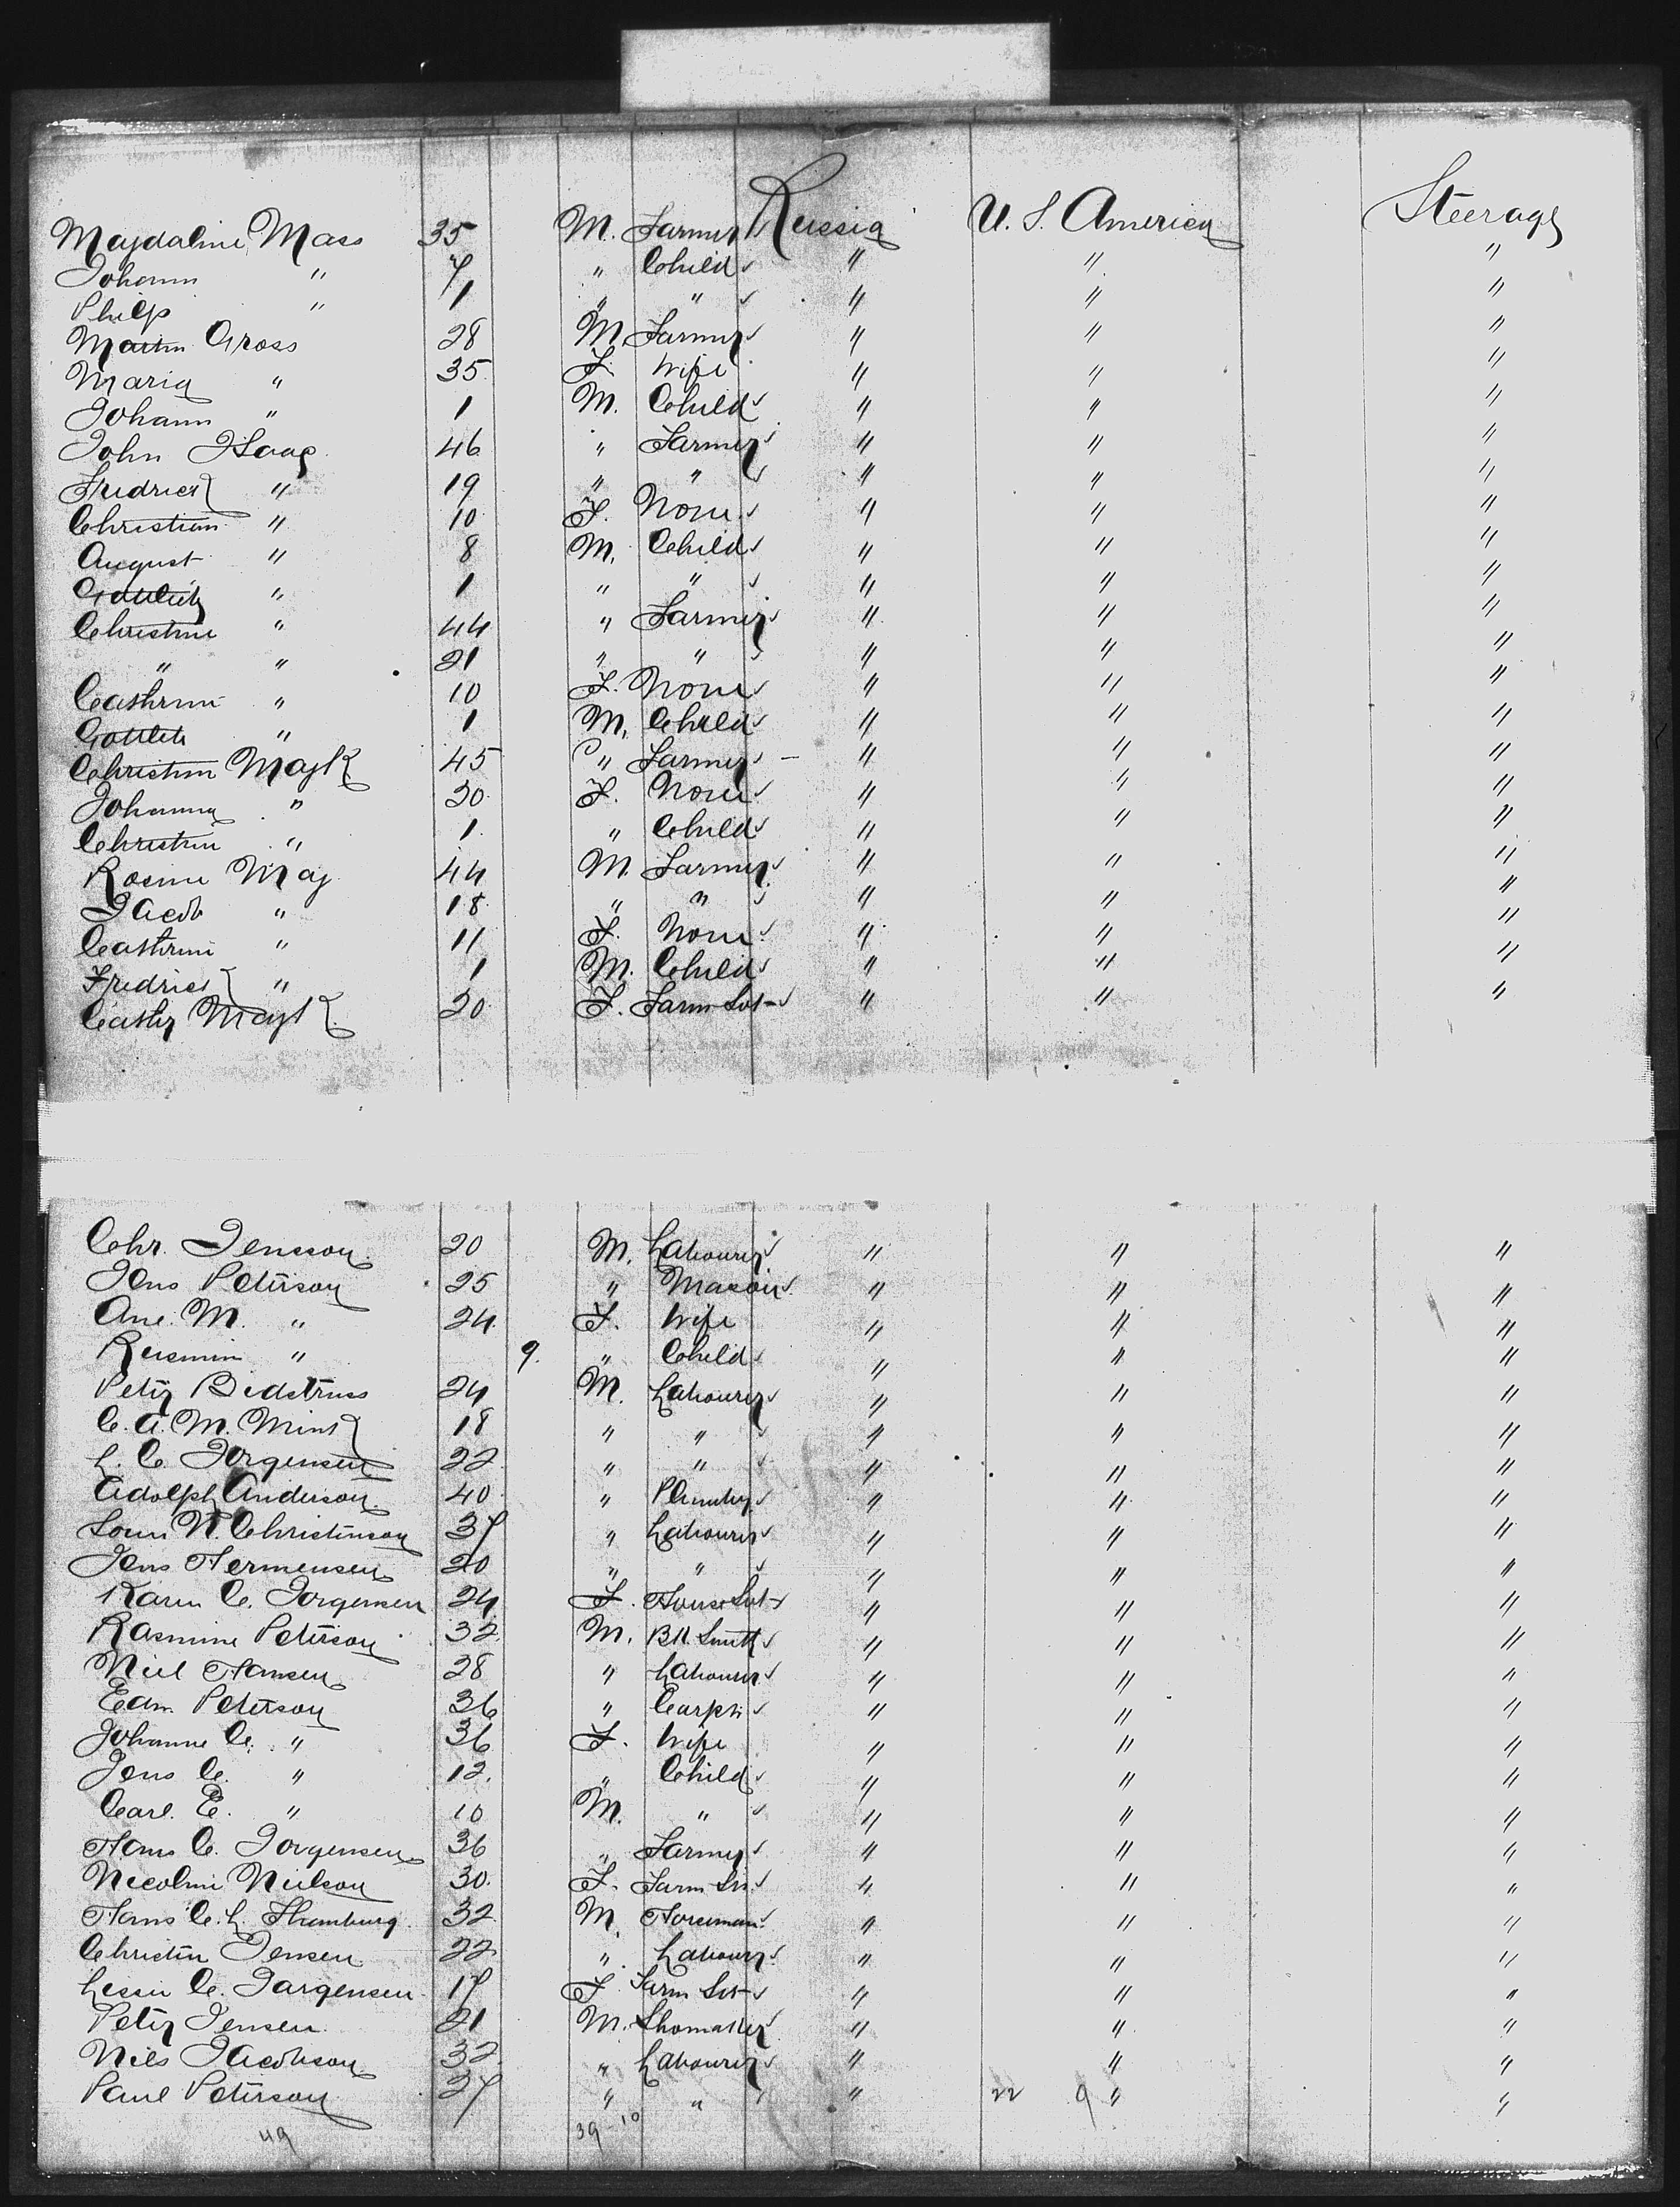 Majdaline Mass 35 M. Farmer Russia U. S. America Steerage
Johann " 7 " Child " " "
Philp " 1 " " " " "
Martin Gross 28 M Farmer " " "
Maria " 35 F. Wife " " "
Johann " 1 M. Child " " "
John Haag 46 " Farmer " " "
Fredrick " 19 " " " " "
Christian " 10 F. None " " "
August " 8 M. Child " " "
Gottlieb " 1 " " " " "
Christine " 44 " Farmer " " "
" " 21 " " " " "
Cathrine " 10 F. None " " "
Gottleb " 1 M. Child " " "
Christin MajK 45 " Farmer " " "
Johanna " 20 F. None " " "
Christin " 1 " Child " " "
Rosine Maj 44 M. Farmer " " "
Jacob " 18 " " " " "
Cathrine " 11 F. None " " "
Fredrick " 1 M. Child " " "
Cathr MajK 20 F. Farm Svt " " "
Chr. Jensson 20 M. Labourer " " "
Jens Peterson 25 " Mason " " "
Ane. M. " 24 F. Wife " " "
Rasmin " 9. " Child " " "
Peter Bidstruss 24 M. Labourer " " "
C. A. M. Mink 18 " " " " "
L. C. Jorgensen 22 " " " " "
Adolph Anderson 40 " Plumber " " "
Soren N. Christinson 37 " Labourer " " "
Jens Hermensen 20 " " " " "
Karen C. Jorgensen 24 F. House Svt " " "
Rasmine Peterson 32 M. Bl. Smith " " "
Niel Hansen 28 " Labourer " " "
Edm Peterson 36 " Carptr " " "
Johanne C. " 36 F. Wife " " "
Jens C. " 12 " Child " " "
Carl. E. " 10 M. " " " "
Hans C. Jorgensen 36 " Farmer " " "
Nicoline Neilson 30 F. Farm Svt " " "
Hans C. L. Thumburg 32 M. Horseman " " "
Christin Jensen 22 " Labourer " " "
Lessie C. Jargensen 17 F. Farm Svt " " "
Peter Jensen 21 M. Shomaker " " "
Nils Jacobson 32 " Labourer " " "
Paul Peterson 27 " " " 22 9 " "
49 39 10